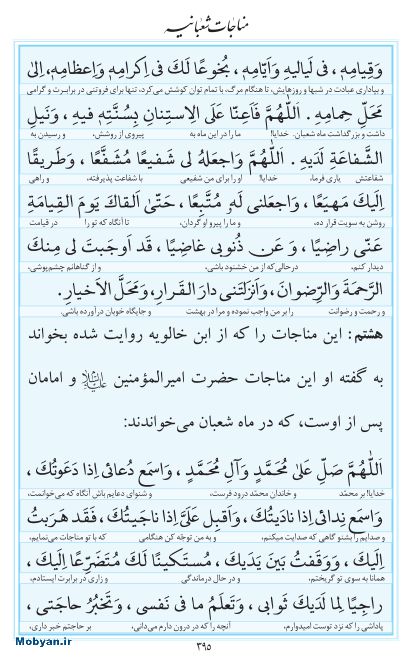 مناجات شعبانیه
وَقِیامِهِ، فی لَیالیهِ وَاَیّامِهِ، بُخُوعًا لَکَ فی اِکرامِهِ وَاِعظامِهِ، اِلیٰ
و بیداری عبادت در شبها و روزهایش، تا هنگام مرگ، با تمام توان کوشش می‌کرد، تنها برای فروتنی در برابرت و گرامی
مَحَلِّ حِمامِهِ. اَللّٰهُمَّ فَاَعِنّا عَلَی الاِستِنانِ بِسُنَّتِهِ فیهِ، وَنَیلِ
داشت و بزرگداشت ماه شعبان. خدایا! ما را در این ماه به پیروی از روشش، و رسیدن به
الشَّفاعَةِ لَدَیهِ. اَللّٰهُمَّ وَاجعَلهُ لی شَفیعًا مُشَفَّعًا، وَطَریقًا
شفاعتش یاری فرما، خدایا! او را برای من شفیعی با شفاعت پذیرفته، و راهی
اِلَیکَ مَهیَعًا، وَاجعَلنی لَهُ مُتَّبِعًا، حَتّیٰ اَلقاکَ یَومَ القِیامَةِ
روشن به سویت قرار ده، و ما را پیرو او گردان، تا آنگاه که تو را در قیامت
عَنّی راضِیًا، وَعَن ذُنوبی غاضِیًا، قَد اَوجَبتَ لی مِنکَ
دیدار کنم، درحالی‌که از من خشنود باشی، و از گناهانم چشم‌پوشی،
الرَّحمَةَ وَالرِّضوانَ، وَاَنزَلتَنی دارَ القَرارِ، وَمَحَلَّ الاَخیارِ.
و رحمت و رضوانت را بر من واجب نموده و مرا در بهشت و جایگاه خوبان درآورده باشی.
هشتم: این مناجات را که از ابن خالویه روایت شده بخواند
به گفته او این مناجات حضرت امیرالمؤمنین علیه السلام و امامان
پس از اوست، که در ماه شعبان می‌خواندند:
اَللّٰهُمَّ صَلِّ عَلیٰ مُحَمَّدٍ وَآلِ مُحَمَّدٍ، وَاسمَع دُعائی اِذا دَعَوتُکَ،
خدایا! بر محمّد و خاندان محمّد درود فرست، و شنوای دعایم باش آنگاه که می‌خوانمت،
وَاسمَع نِدائی اِذا نادَیتُکَ، وَاَقبِل عَلَیَّ اِذا ناجَیتُکَ، فَقَد هَرَبتُ
و صدایم را بشنو گاهی که صدایت میکنم، و به من توجّه کن هنگامی که با تو مناجات می‌نمایم،
اِلَیکَ، وَوَقَفتُ بَینَ یَدَیکَ، مُستَکینًا لَکَ مُتَضَرِّعًا اِلَیکَ،
همانا به سوی تو گریختم، و در حال درماندگی و زاری در برابرت ایستادم،
راجِیًا لِما لَدَیکَ ثَوابی، وَتَعلَمُ ما فی نَفسی، وَتَخبُرُ حاجَتی،
پاداشی را که نزد توست امیدوارم، آنچه را که در درون دارم می‌دانی، بر حاجتم خبر داری،
Mobyan.ir
۳۹۵